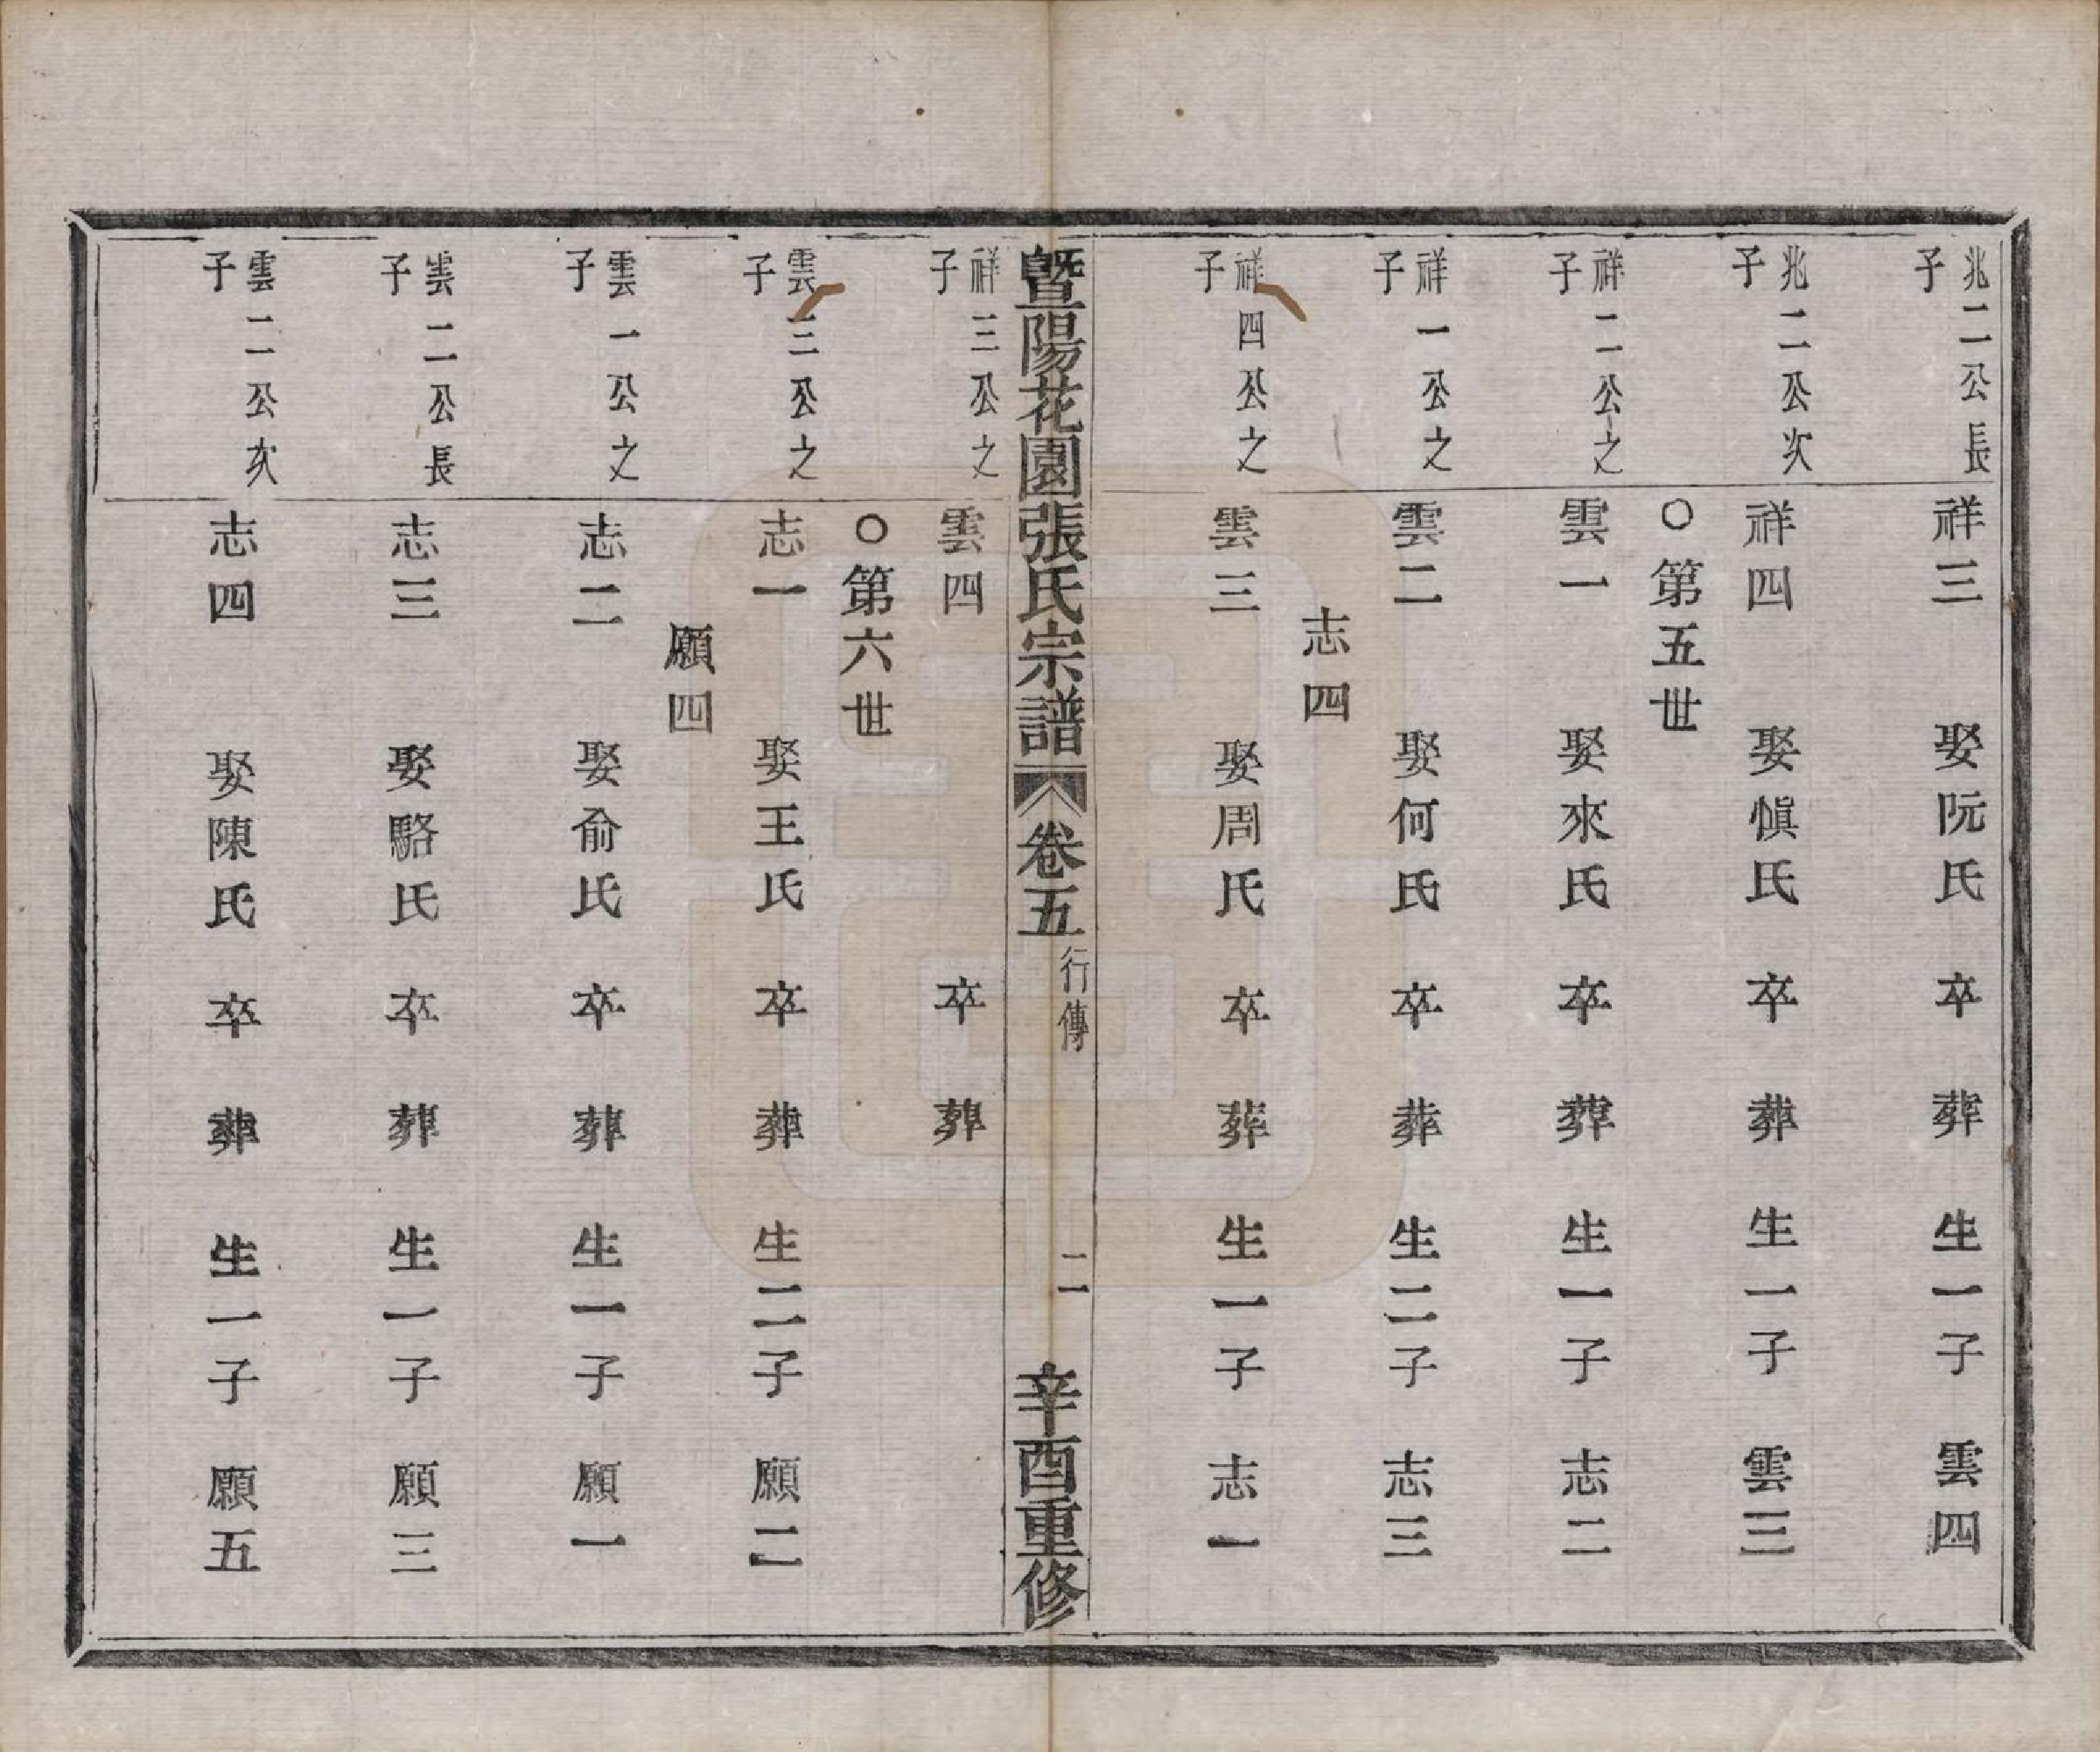 兆二公長子
祥三　娶阮氏　卒　葬　生一子　雲四
兆二公次子
祥四　娶愼氏　卒　葬　生一子　雲三
○第五世
祥二公之子
雲一　娶來氏　卒　葬　生一子　志二
祥一公之子
雲二　娶何氏　卒　葬　生二子　志三
志四
祥四公之子
雲三　娶周氏　卒　葬　生一子　志一
暨陽花園張氏宗譜　卷五　行傳　二　辛酉重修
祥三公之子
雲四　卒　葬
○第六世
雲三公之子
志一　娶王氏　卒　葬　生二子　願二
願四
雲一公之子
志二　娶俞氏　卒　葬　生一子　願一
雲二公長子
志三　娶駱氏　卒　葬　生一子　願三
雲二公次子
志四　娶陳氏　卒　葬　生一子　願五